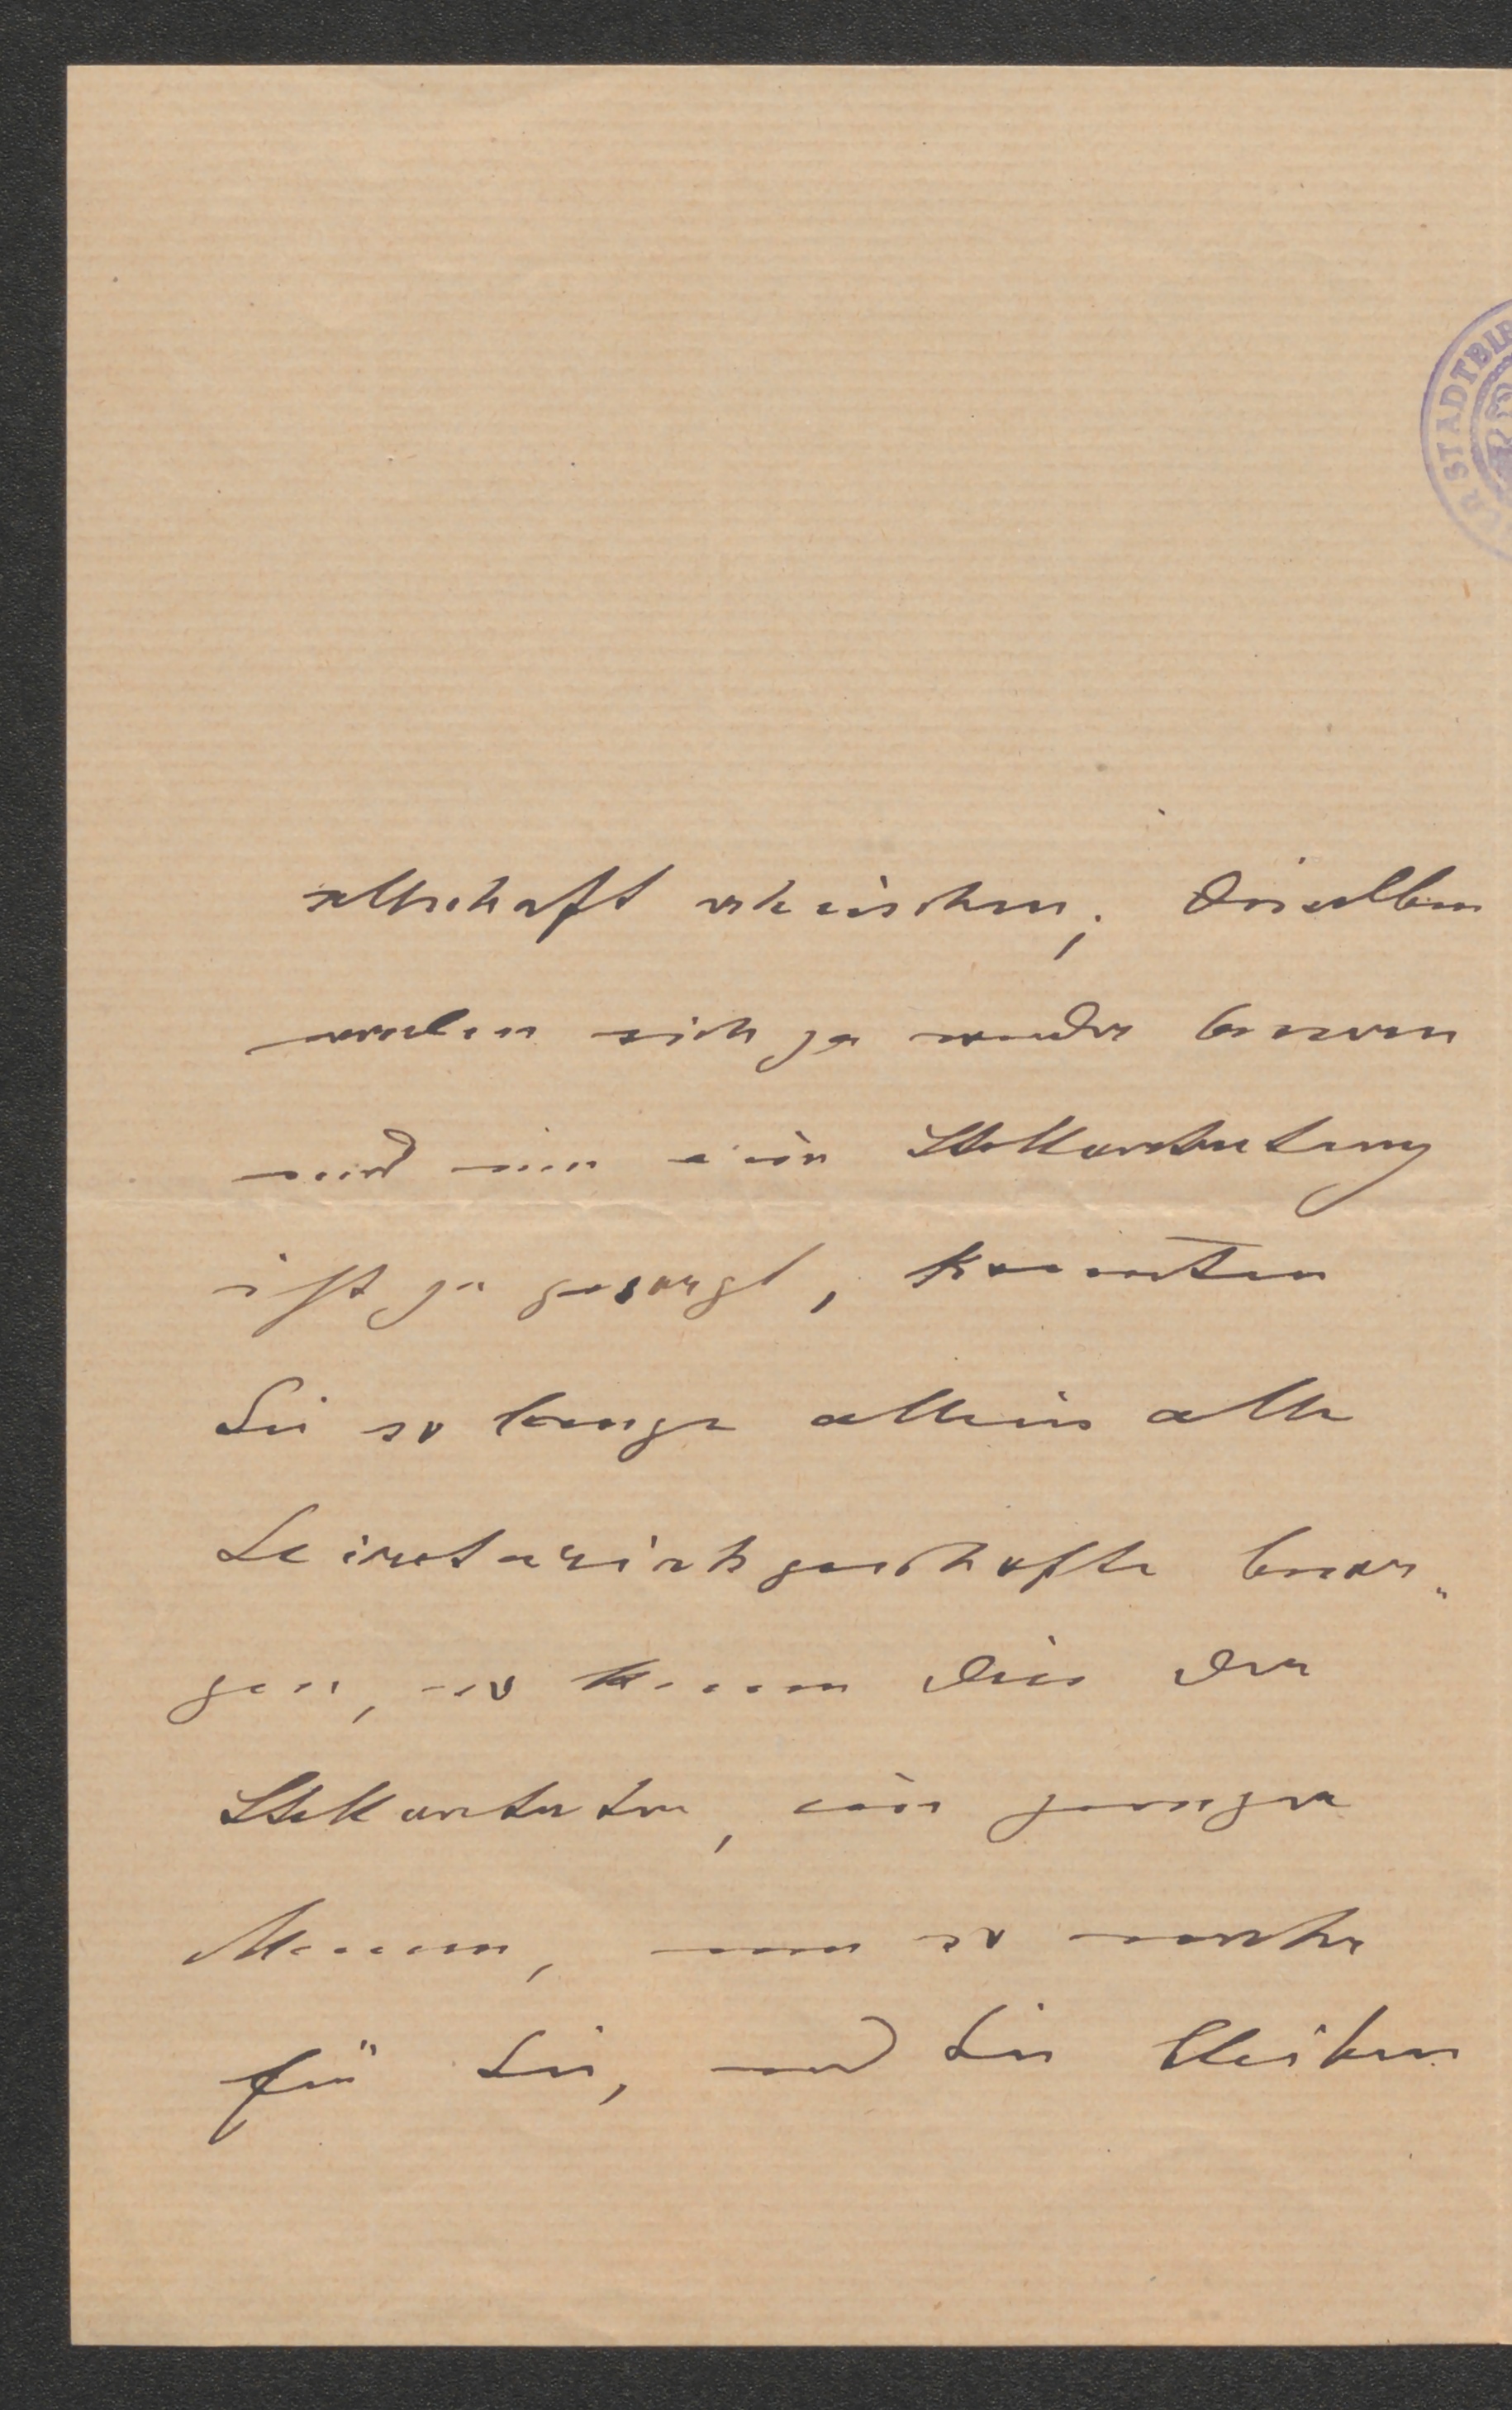 sellschaft erheischen; dieselben
werden sich ja wieder bessern
und um eine Stellvertretung
ist ja gesorgt, konnten
Sie so lange allein alle
Secretariatsgeschäfte besor„
gen, so kann dies der
Stellvertreter, ein junger
Mann, um so mehr
für Sie, und Sie bleiben
STADTBI